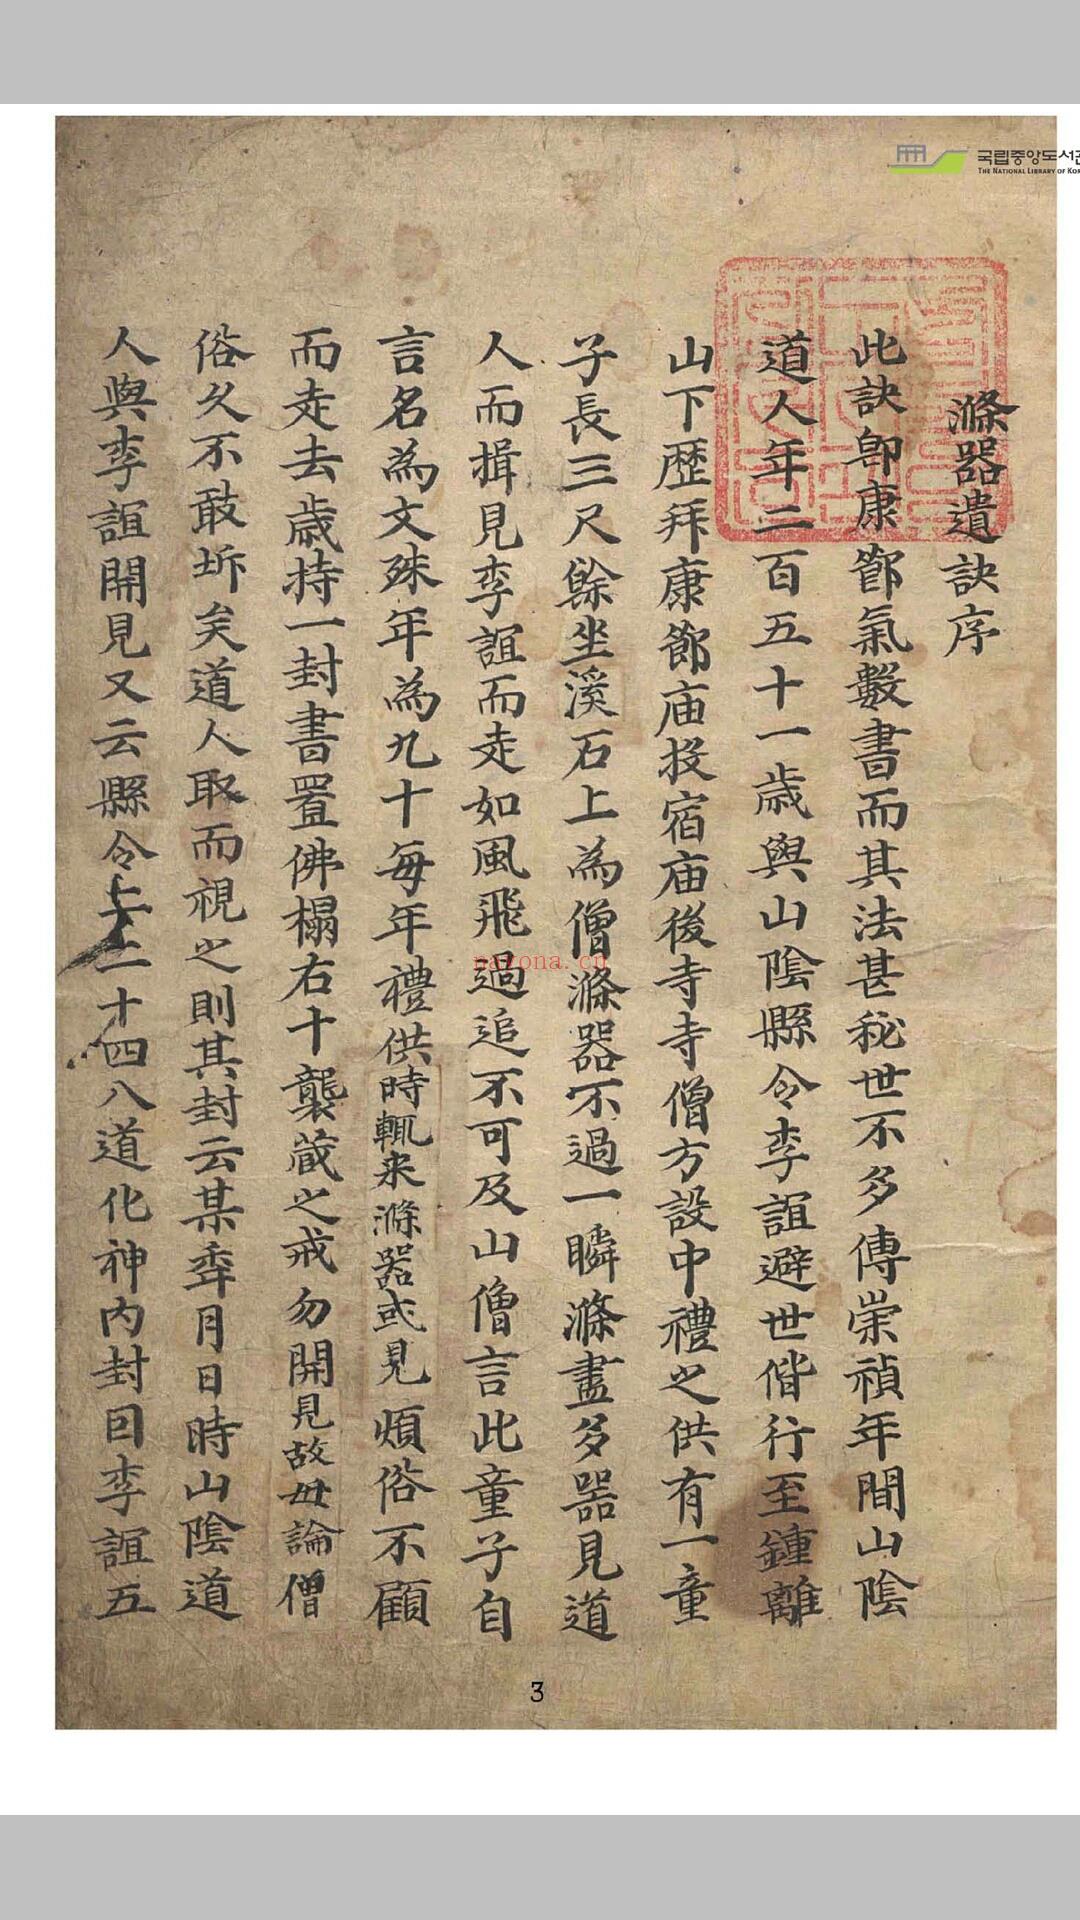 국립중앙도서관
THE NATIONAL LIBRARY OF KOR
滌器遺訣序
此訣卽康節氣數書而其法甚秘世不多傳崇禎年間山陰
道人年二百五十一歲與山陰縣令李誼避世偕行至鍾離
山下歷拜康節庙投宿庙後寺寺僧方設中禮之供有一童
子長三尺餘坐溪石上為僧滌器不過一瞬滌盡多器見道
人而揖見李誼而走如風飛過追不可及山僧言此童子自
言名為文殊年為九十每年禮供時輒来滌器或見煩俗不顧
而走去歲持一封書置佛榻右十襲蔵之戒勿開見故毋論僧
俗久不敢坼矣道人取而視之則其封云某年月日時山陰道
人與李誼開見又云縣令上上二十四八道化神內封曰李誼五
nayona.cn
3